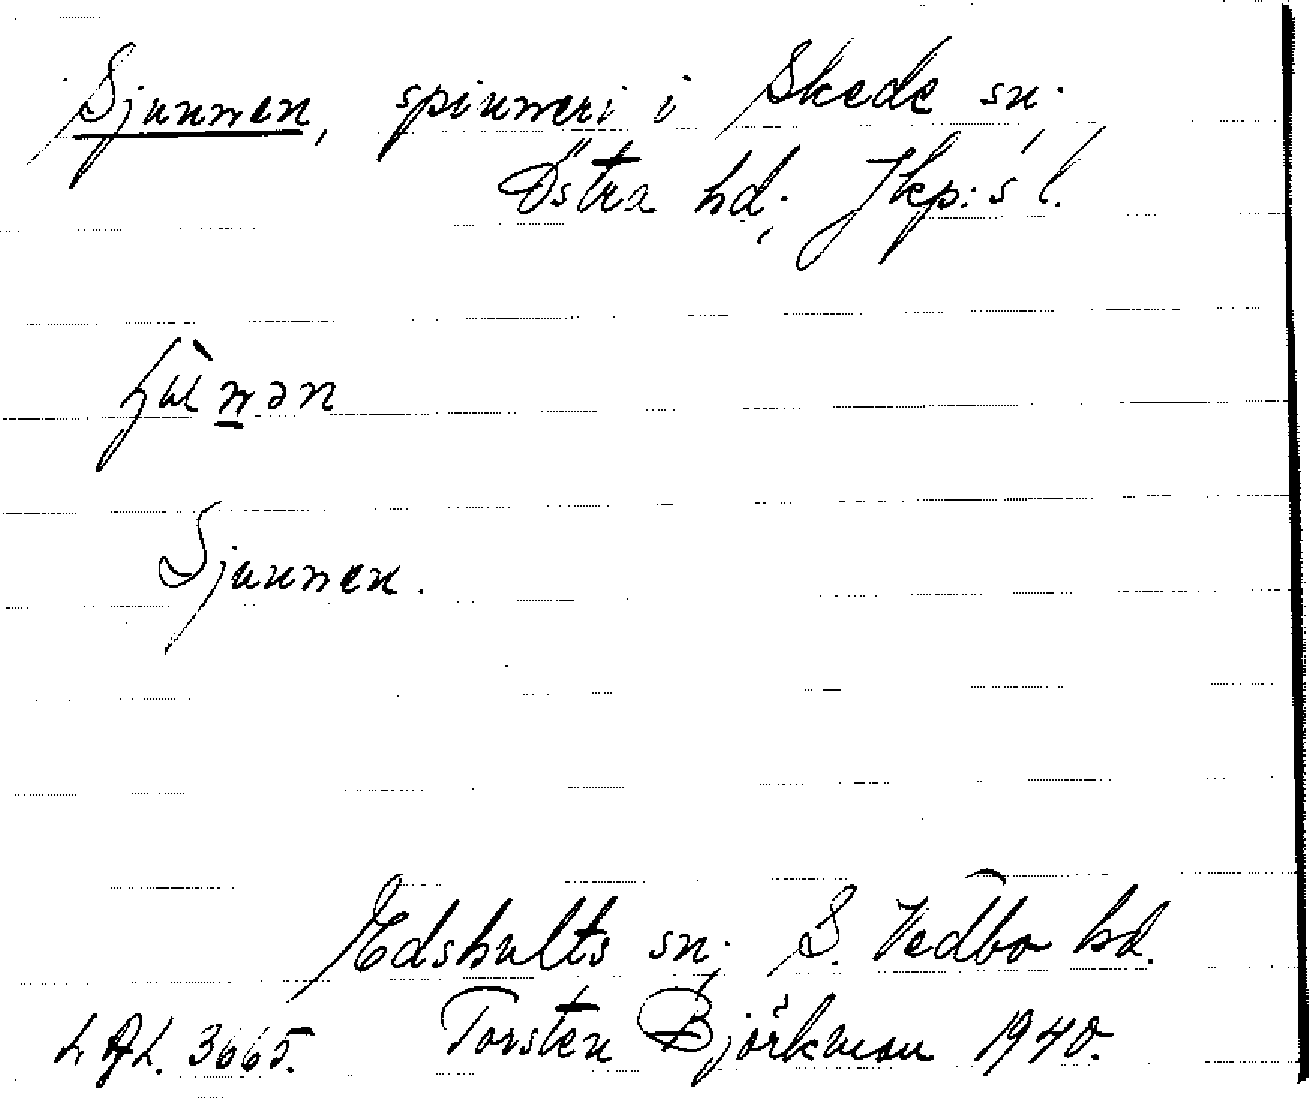 Sjunnen, spinneri i Skede sn.
Östra hd., Jkp:s l.
Sjunnen.
Edshults sn., S. Vedbo hd.
Torsten Björkman 1940.
3665.